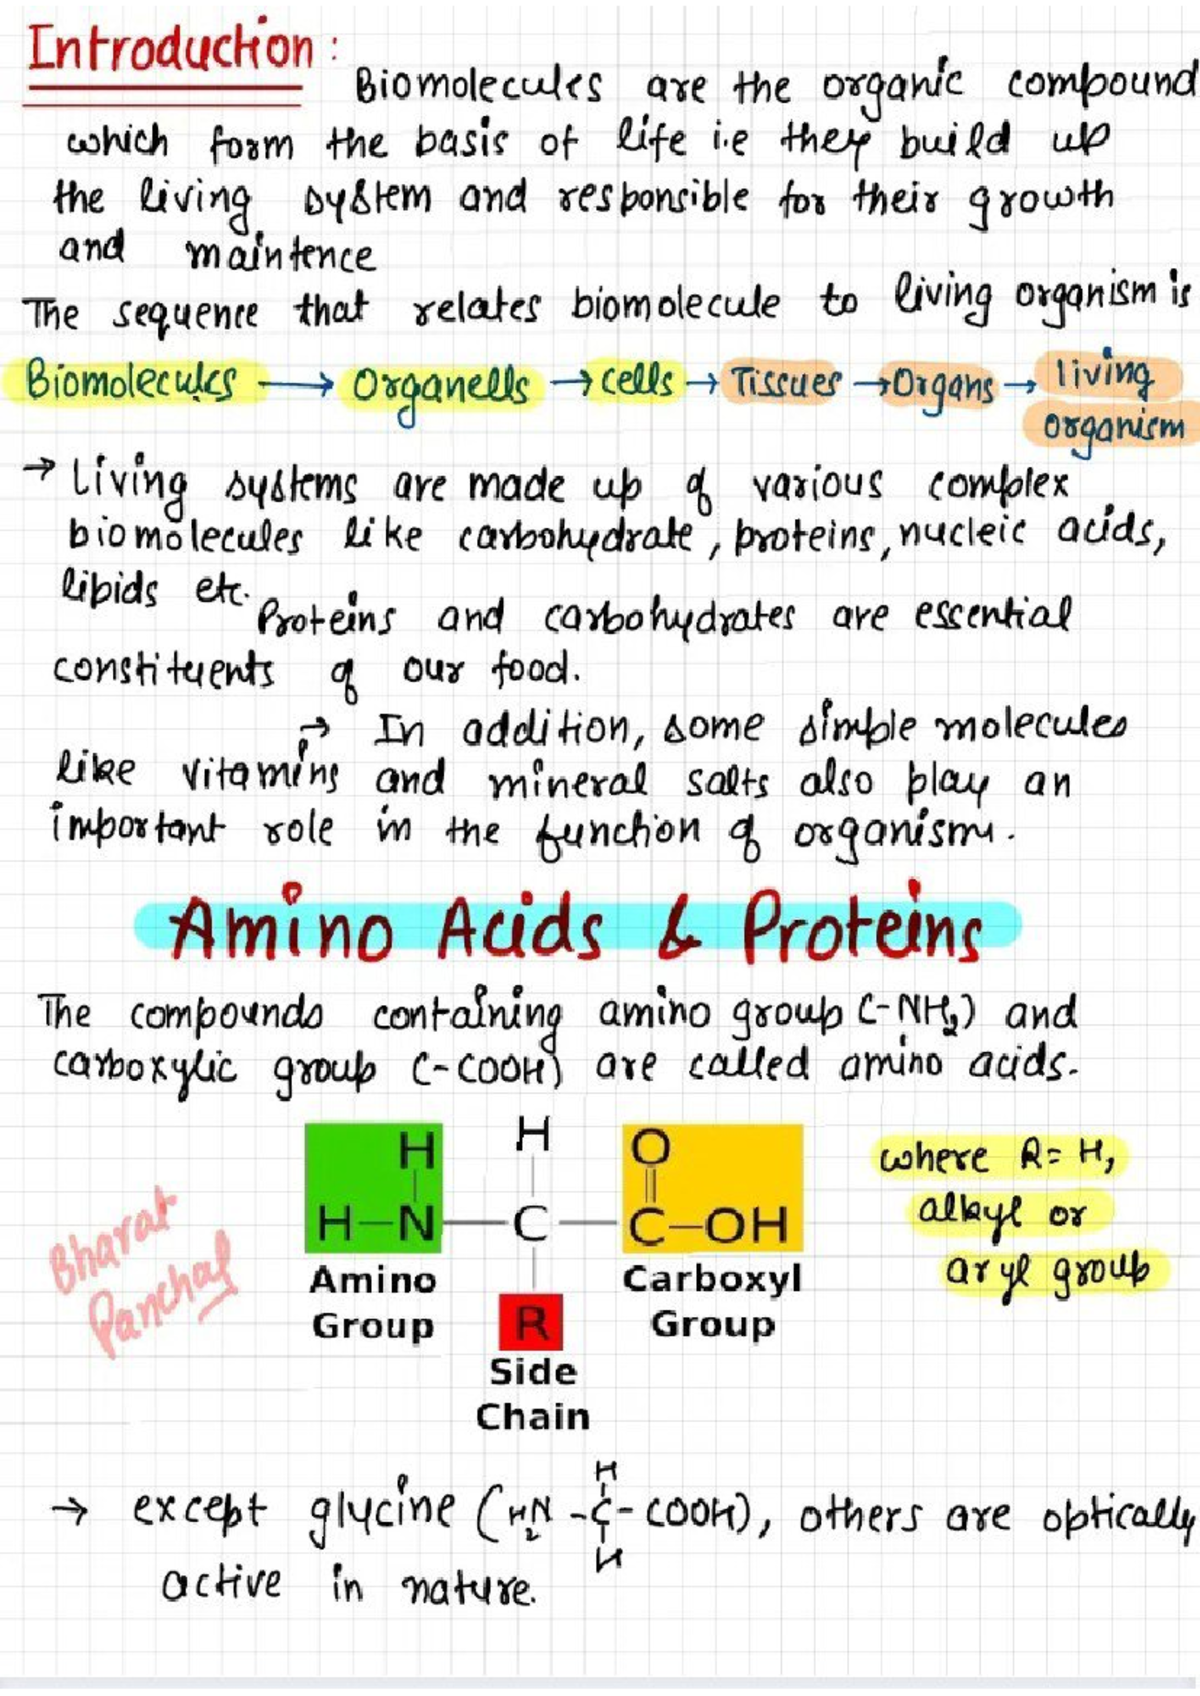 Introduction :
Biomolecules are the organic compound
which form the basis of life i.e they build up
the living system and responsible for their growth
and maintence
The sequence that relates biomolecule to living organism is
Biomolecules → Organells → cells → Tissues → Organs → living
organism
→ Living systems are made up of various complex
biomolecules like carbohydrate, proteins, nucleic acids,
lipids etc.
Proteins and carbohydrates are essential
constituents of our food.
→ In addition, some simple molecules
like vitamins and mineral salts also play an
important role in the function of organisms.
Amino Acids & Proteins
The compounds containing amino group (-NH₂) and
carboxylic group (-COOH) are called amino acids.
H H O
H-N-C-C-OH
Amino Group
R
Side Chain
Carboxyl Group
where R = H,
alkyl or
aryl group
Bharat
Panchal
H
→ except glycine (H₂N -C- COOH), others are optically
H
active in nature.